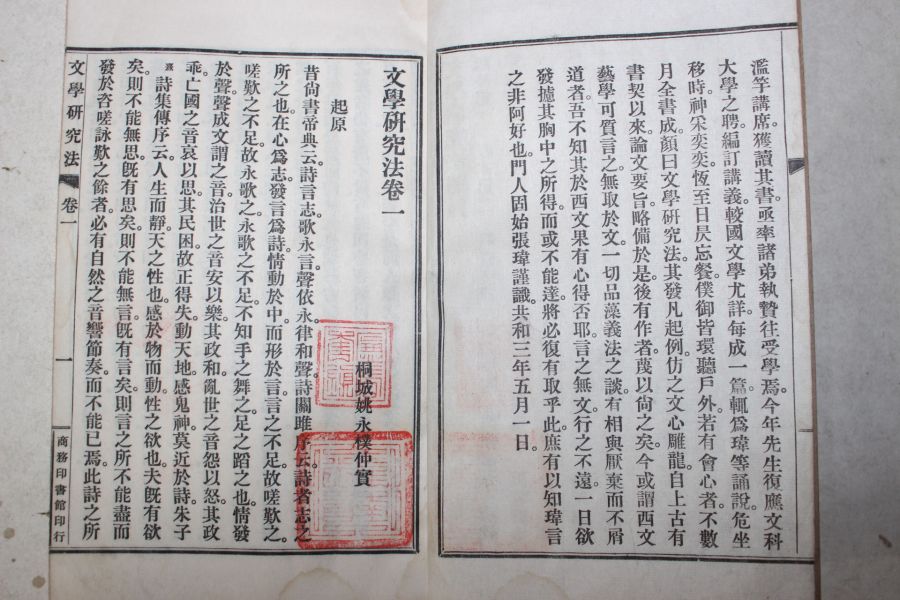 濫竽講席。獲讀其書。亟率諸弟執贄往受學焉。今年先生復應文科
大學之聘。編訂講義。較國文學尤詳。每成一篇。輒爲瑋等誦說。危坐
移時。神采奕奕。恆至日昃忘餐。僕御皆環聽戶外。若有會心者。不數
月全書成。顏曰文學研究法。其發凡起例。仿之文心雕龍。自上古有
書契以來。論文要旨。略備於是。後有作者。蔑以尙之矣。今或謂西文
藝學可質言之。無取於文。一切品藻義法之談。有相與厭棄而不屑
道者。吾不知其於西文果有心得否耶。言之無文。行之不遠。一日欲
發攄其胸中之所得。而或不能達。將必復有取乎此。庶有以知瑋言
之非阿好也。門人固始張瑋謹識。共和三年五月一日。
文學研究法卷一
桐城姚永樸仲實
起原
昔尙書帝典云。詩言志。歌永言。聲依永。律和聲。詩關雎序云。詩者志之
所之也。在心爲志。發言爲詩。情動於中。而形於言。言之不足。故嗟歎之。
嗟歎之不足。故永歌之。永歌之不足。不知手之舞之足之蹈之也。情發
於聲。聲成文謂之音。治世之音安以樂。其政和。亂世之音怨以怒。其政
乖。亡國之音哀以思。其民困。故正得失。動天地。感鬼神。莫近於詩。朱子
熹詩集傳序云。人生而靜。天之性也。感於物而動。性之欲也。夫旣有欲
矣。則不能無思。旣有思矣。則不能無言。旣有言矣。則言之所不能盡。而
發於咨嗟詠歎之餘者。必有自然之音響節奏。而不能已焉。此詩之所
文學研究法 卷一
一
商務印書館印行